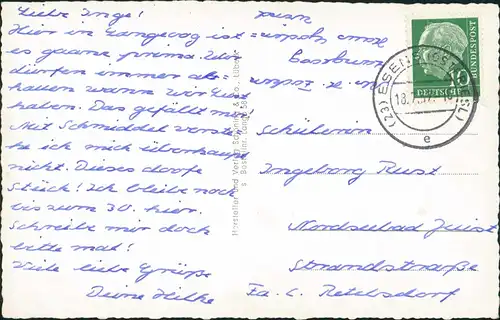 Liebe Inge!
Hier in Langeoog ist
es ganz prima. Wir
dürfen immer ab-
hauen wann wir Lust
haben. Das gefällt mir.
Mit Schmiddel versteh
ich mich überhaupt
nicht. Dieses doofe
Stück! Ich bleibe noch
bis zum 30. hier.
Schreibe mir doch
bitte mal!
Viele liebe Grüße
Deine Hilke
Hersteller und Verlag Schöning & Co., Lübeck
10
DEUTSCHE
BUNDESPOST
(23) ESENS (OSTFRIESL)
e
Schülerin
Ingeborg Rust
Nordseebad Juist
Strandstraße
Fa. C. Retelsdorf